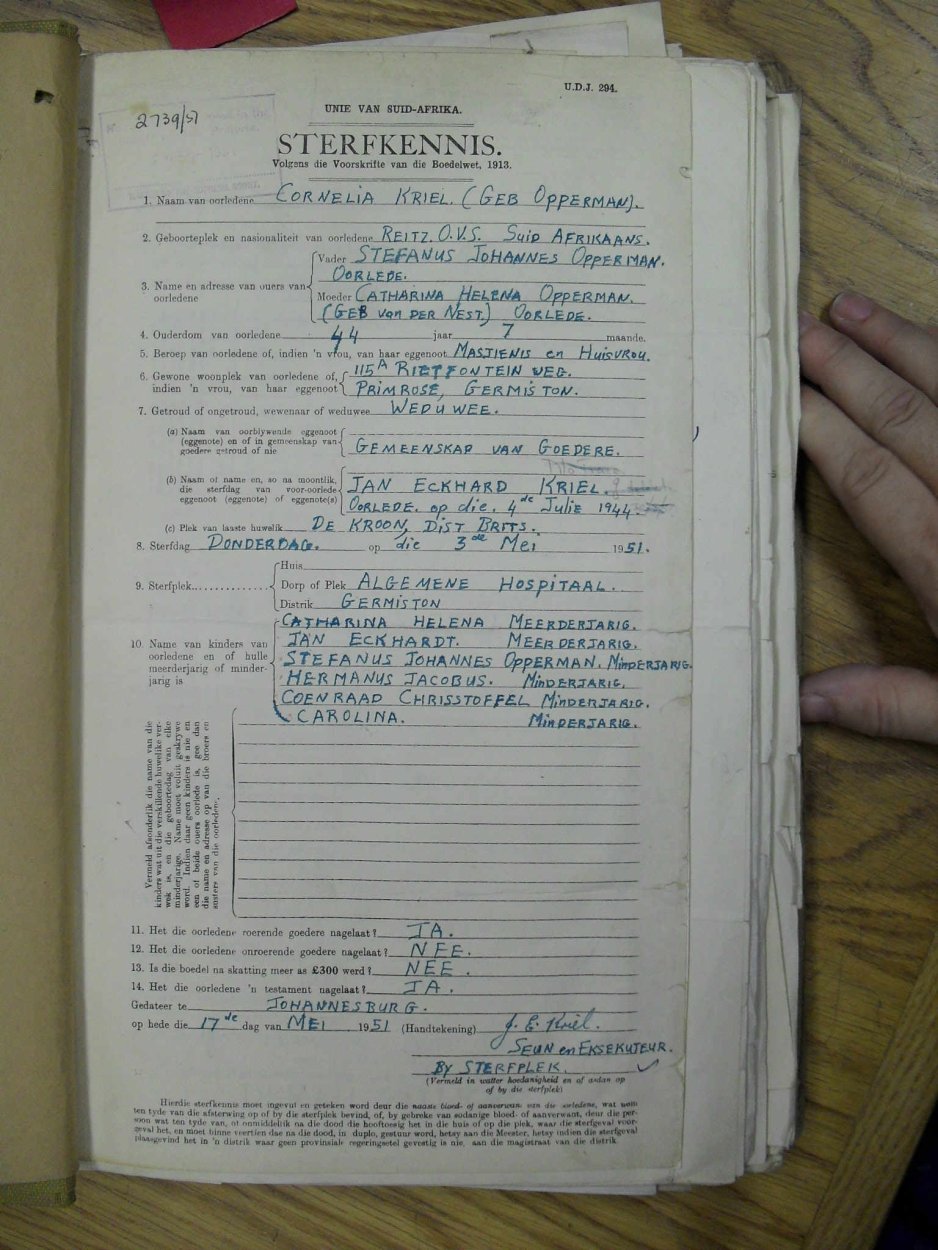 U.D.J. 294.
2739/51
UNIE VAN SUID-AFRIKA.
STERFKENNIS.
Volgens die Voorskrifte van die Boedelwet, 1913.
1. Naam van oorledene CORNELIA KRIEL. (GEB OPPERMAN).
2. Geboorteplek en nasionaliteit van oorledene REITZ. O.V.S. SUID AFRIKAANS.
3. Name en adresse van ouers van oorledene
Vader STEFANUS JOHANNES OPPERMAN.
OORLEDE.
Moeder CATHARINA HELENA OPPERMAN.
(GEB VAN DER NEST.) OORLEDE.
4. Ouderdom van oorledene 44 jaar 7 maande.
5. Beroep van oorledene of, indien 'n vrou, van haar eggenoot MASJIENIS en HUISVROU.
6. Gewone woonplek van oorledene of, 115A RIETFONTEIN WEG.
indien 'n vrou, van haar eggenoot PRIMROSE, GERMISTON.
7. Getroud of ongetroud, wewenaar of weduwee WEDUWEE.
(a) Naam van oorblywende eggenoot
(eggenote) en of in gemeenskap van
goedere getroud of nie GEMEENSKAP VAN GOEDERE.
(b) Naam of name en, so na moontlik,
die sterfdag van voor-oorlede JAN ECKHARD KRIEL.
eggenoot (eggenote) of eggenote(s) OORLEDE. op die. 4de JULIE 1944.
(c) Plek van laaste huwelik DE KROON, DIST BRITS.
8. Sterfdag DONDERDAG. op die 3de Mei 1951.
9. Sterfplek
Huis
Dorp of Plek ALGEMENE HOSPITAAL.
Distrik GERMISTON
10. Name van kinders van
oorledene en of hulle
meerderjarig of minder-
jarig is
CATHARINA HELENA MEERDERJARIG.
JAN ECKHARDT. MEERDERJARIG.
STEFANUS JOHANNES OPPERMAN. MINDERJARIG.
HERMANUS JACOBUS. MINDERJARIG.
COENRAAD CHRISSTOFFEL MINDERJARIG.
CAROLINA. MINDERJARIG.
Vermeld afsonderlik die name van die
kinders wat uit die verskillende huwelike ver-
wek is, en die geboortedag van elke
minderjarige. Name moet voluit geskrywe
word. Indien daar geen kinders is nie en
een of beide ouers oorlede is, gee dan
die name en adresse op van die broers en
susters van die oorledene.
11. Het die oorledene roerende goedere nagelaat? JA.
12. Het die oorledene onroerende goedere nagelaat? NEE.
13. Is die boedel na skatting meer as £300 werd? NEE.
14. Het die oorledene 'n testament nagelaat? JA.
Gedateer te JOHANNESBURG.
op hede die 17de dag van MEI 1951 (Handtekening) J. E. Kriel.
SEUN en EKSEKUTEUR.
BY STERFPLEK.
(Vermeld in watter hoedanigheid en of aldan op
of by die sterfplek)
Hierdie sterfkennis moet ingevul en geteken word deur die naaste bloed- of aanverwant van die oorledene, wat
ten tyde van die afsterwing op of by die sterfplek bevind, of, by gebreke van sodanige bloed- of aanverwant, deur die per-
soon wat ten tyde van, of onmiddelik na die dood die hooftoesig het in die huis of op die plek, waar die sterfgeval voor-
geval het, en moet binne veertien dae na die dood, in duplo, gestuur word, hetsy aan die Meester, hetsy indien die sterfgeval
plaasgevind het in 'n distrik waar geen provinsiale regeringsetel gevestig is nie, aan die magistraat van die distrik